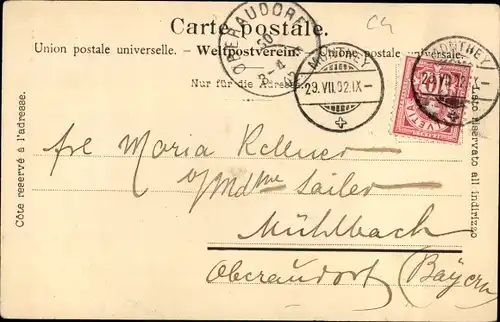 C4
Carte postale.
Union postale universelle. – Weltpostverein. – Unione postale universale.
Nur für die Adresse.
OBERAUDORF
MONTHEY
29.VII.02.IX–
MONTHEY
29.VII.
HELVETIA
10
Côté réservé à l'adresse.
Lato riservato all indirizzo
Maria Kellner
Sailer
Mühlbach
Oberaudorf (Bayern